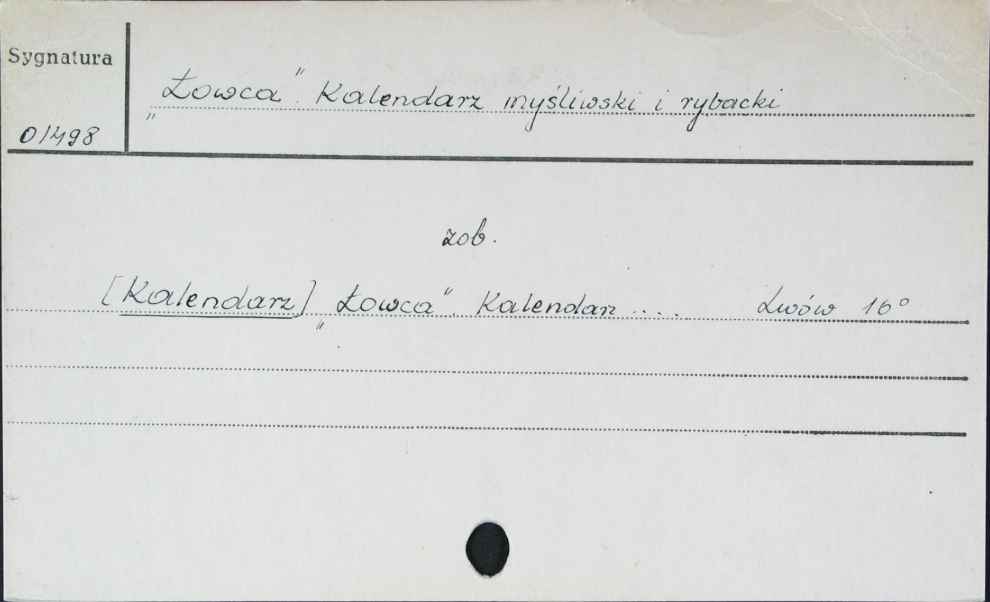 Sygnatura
„Łowca”. Kalendarz myśliwski i rybacki
01498
zob.
[Kalendarz] „Łowca”. Kalendarz .... Lwów 16°